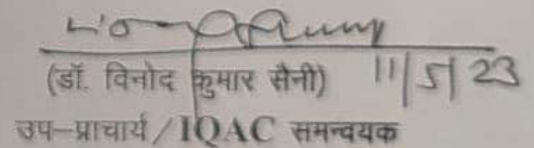 (डॉ. विनोद कुमार सैनी) 11/5/23
उप-प्राचार्य/IQAC समन्वयक